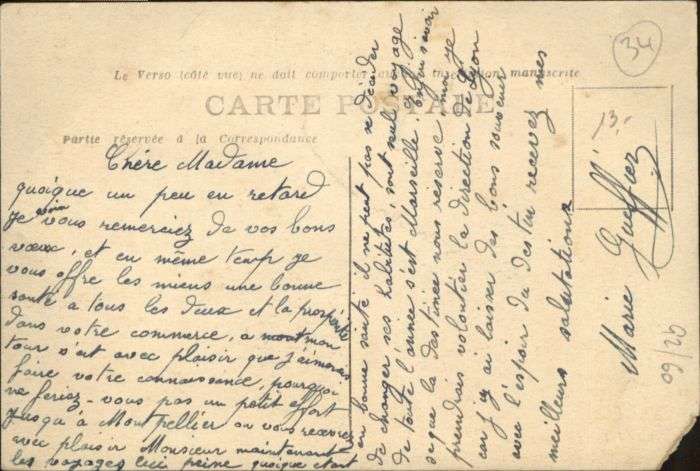 34
Le Verso (côté vue) ne doit comporter inscription manuscrite
CARTE POSTALE
Partie réservée à la Correspondance
Chère Madame
quoique un peu en retard
Je vous remerciez de vos bons
vœux, et en même temp je
vous offre les miens une bonne
santé a tous les deux et la prospérité
dans votre commerce, a mon
tour s'ait avec plaisir que j'aimerais
faire votre connaissance, pourquoi
ne feriez-vous pas un petit effort
Jusqu'à Montpellier on vous recevrez
avec plaisir Monsieur maintenant
les voyages lui peine quoique étant
en bonne santé il ne peut pas se décider
de changer ses habitudes, son seul voyage
de toute l'année s'est Marseille,
se que la destinée nous réserve, moi je
prendrais volontier la direction de Lyon
car j'y ai laisser des bons souvenir
avec l'espoir du destin recevez mes
meilleurs salutations
Marie Gueffier
13-
09/20